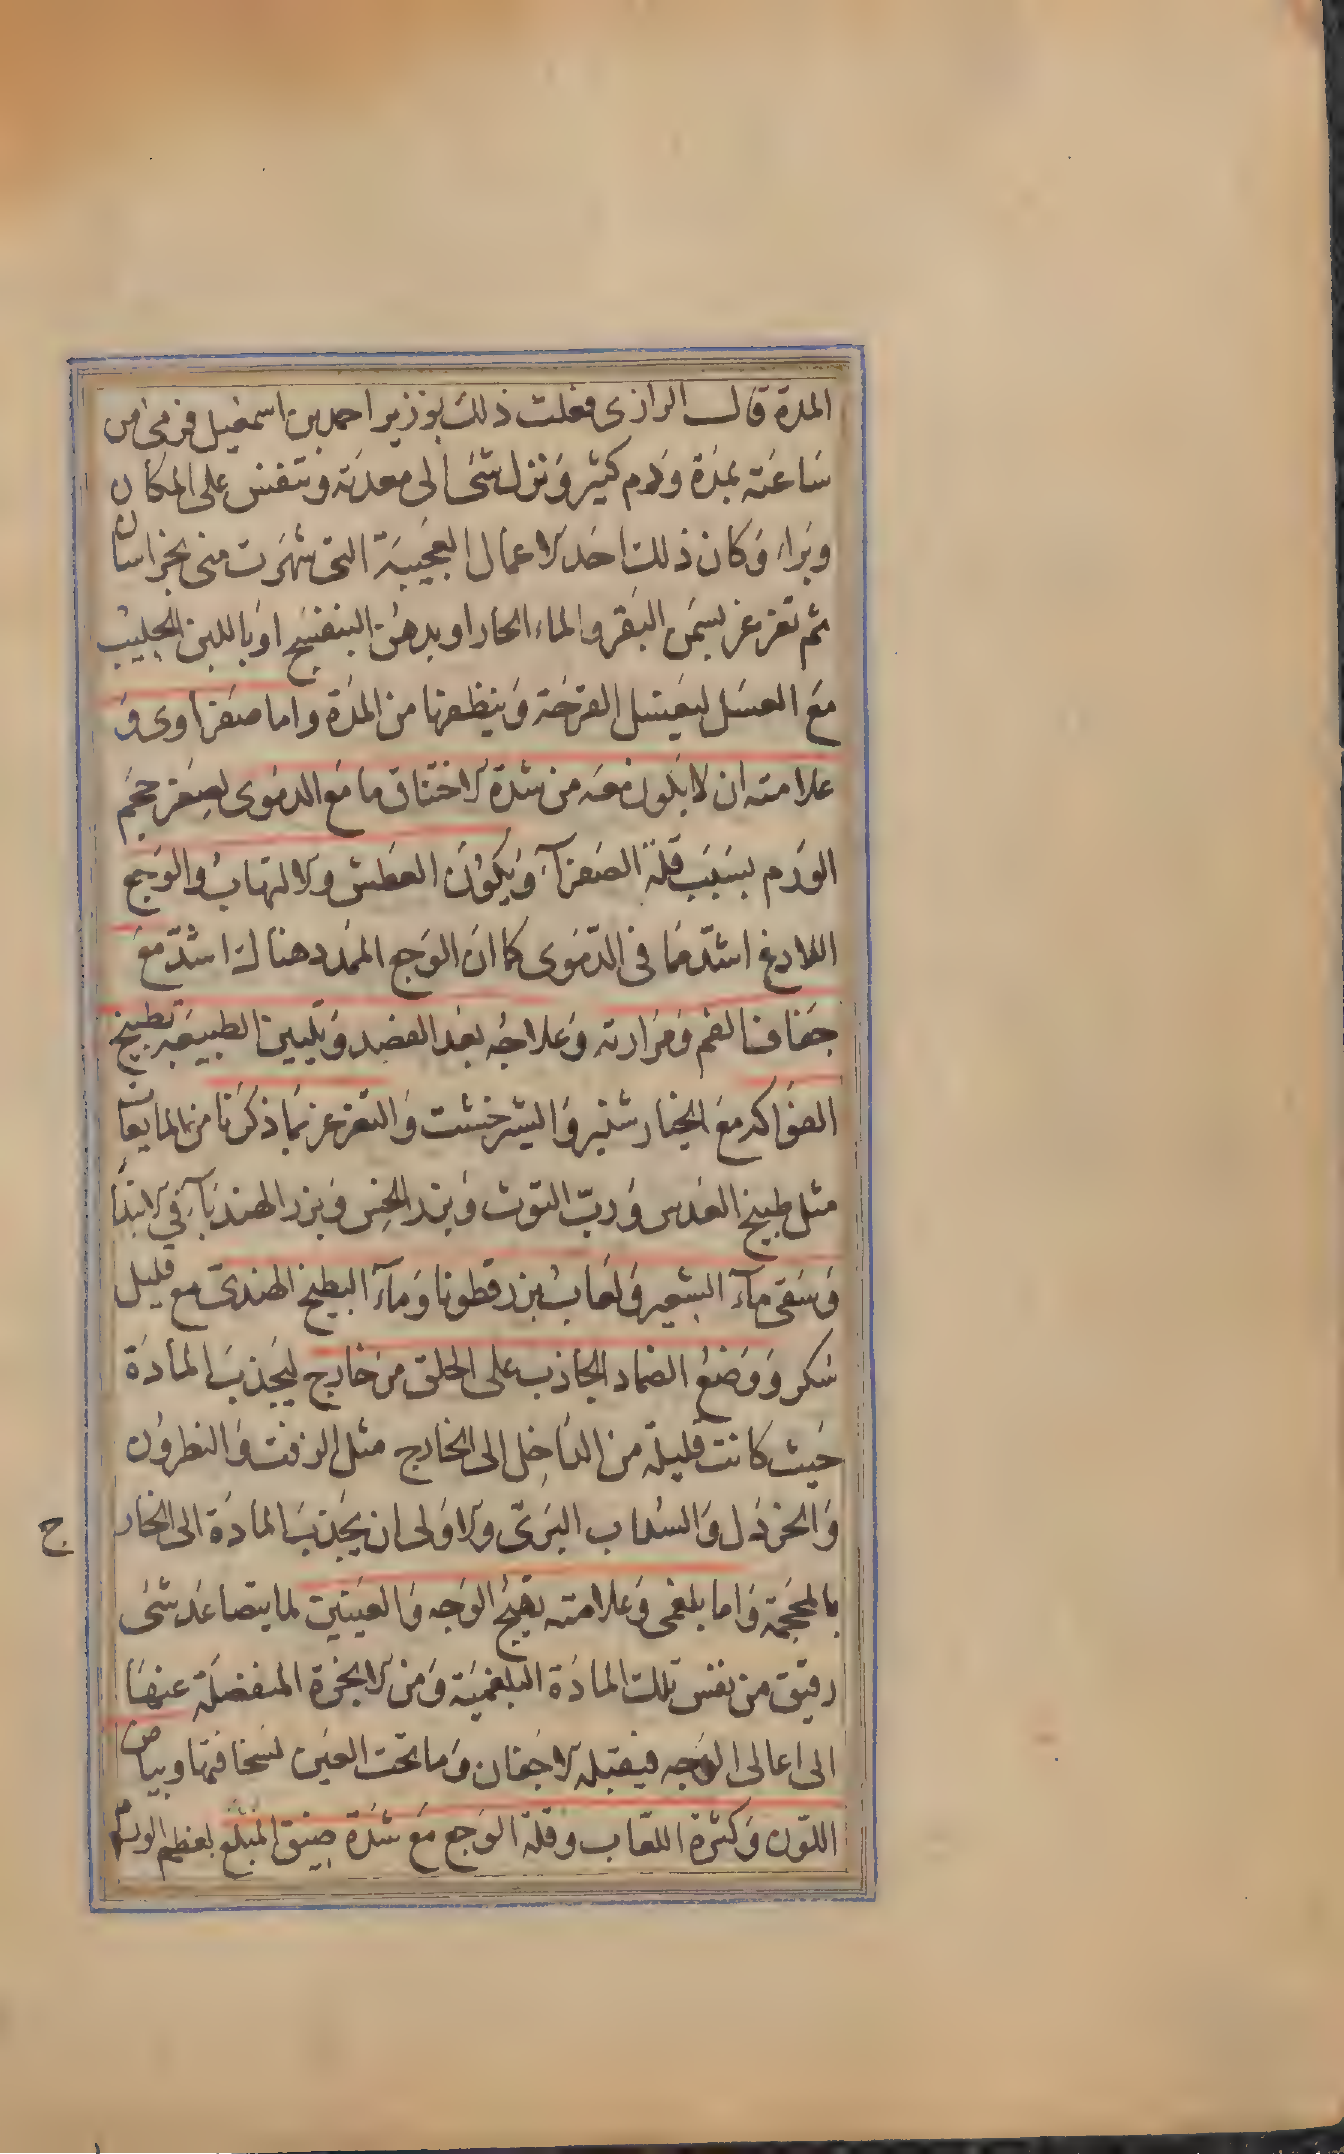 المدة قال الرازى فعلت ذلك بوزير احمد بن اسمعيل فرمى من
ساعته بمدة ودم كثير ونزل شئ الى معدته وتنفس على المكان
وبراء وكان ذلك احد الاعمال العجيبة التى شهرت منى بخراسان
ثم تغرغر بسمن البقر والماء الحار او بدهن البنفسج او باللبن الحليب
مع العسل ليغسل القرحة وينظفها من المدة واما صفراوى و
علامته ان لا يكون معه من شدة الاختناق ما مع الدموى لصغر حجم
الورم بسبب قلة الصفرآء ويكون العطش والالتهاب والوجع
اللادغ اشد مما فى الدموى كما ان الوجع الممدد هناك اشد مع
جفاف الفم ومرارته وعلاجه بعد الفصد وتليين الطبيعة بطبيخ
الفواكه مع الخيار شنبر والشيرخشت والتغرغر بما ذكرنا من المايعات
مثل طبيخ العدس ورب التوث وبزر الخس وبزر الهندبآء فى الابتداء
وسقى مآء الشعير ولعاب بزر قطونا ومآء البطيخ الهندى مع قليل
سكر ووضع الضماد الجاذب على الحلق من خارج ليجذب المادة
حيث كانت قليلة من الداخل الى الخارج مثل الزفت والنطرون
والخردل والسداب البرى والاولى ان يجذب المادة الى الخار
ج
بالمحجمة واما بلغمى وعلامته تهيج الوجه والعينين لما يتصاعد شئ
رقيق من نفس تلك المادة البلغمية ومن الابخرة المنفصلة عنها
الى اعالى الوجه فيقبله الاجفان وما تحت العين لسخافتها وبياض
اللون وكثرة اللعاب وقلة الوجع مع شدة ضيق المبلع لعظم الورم